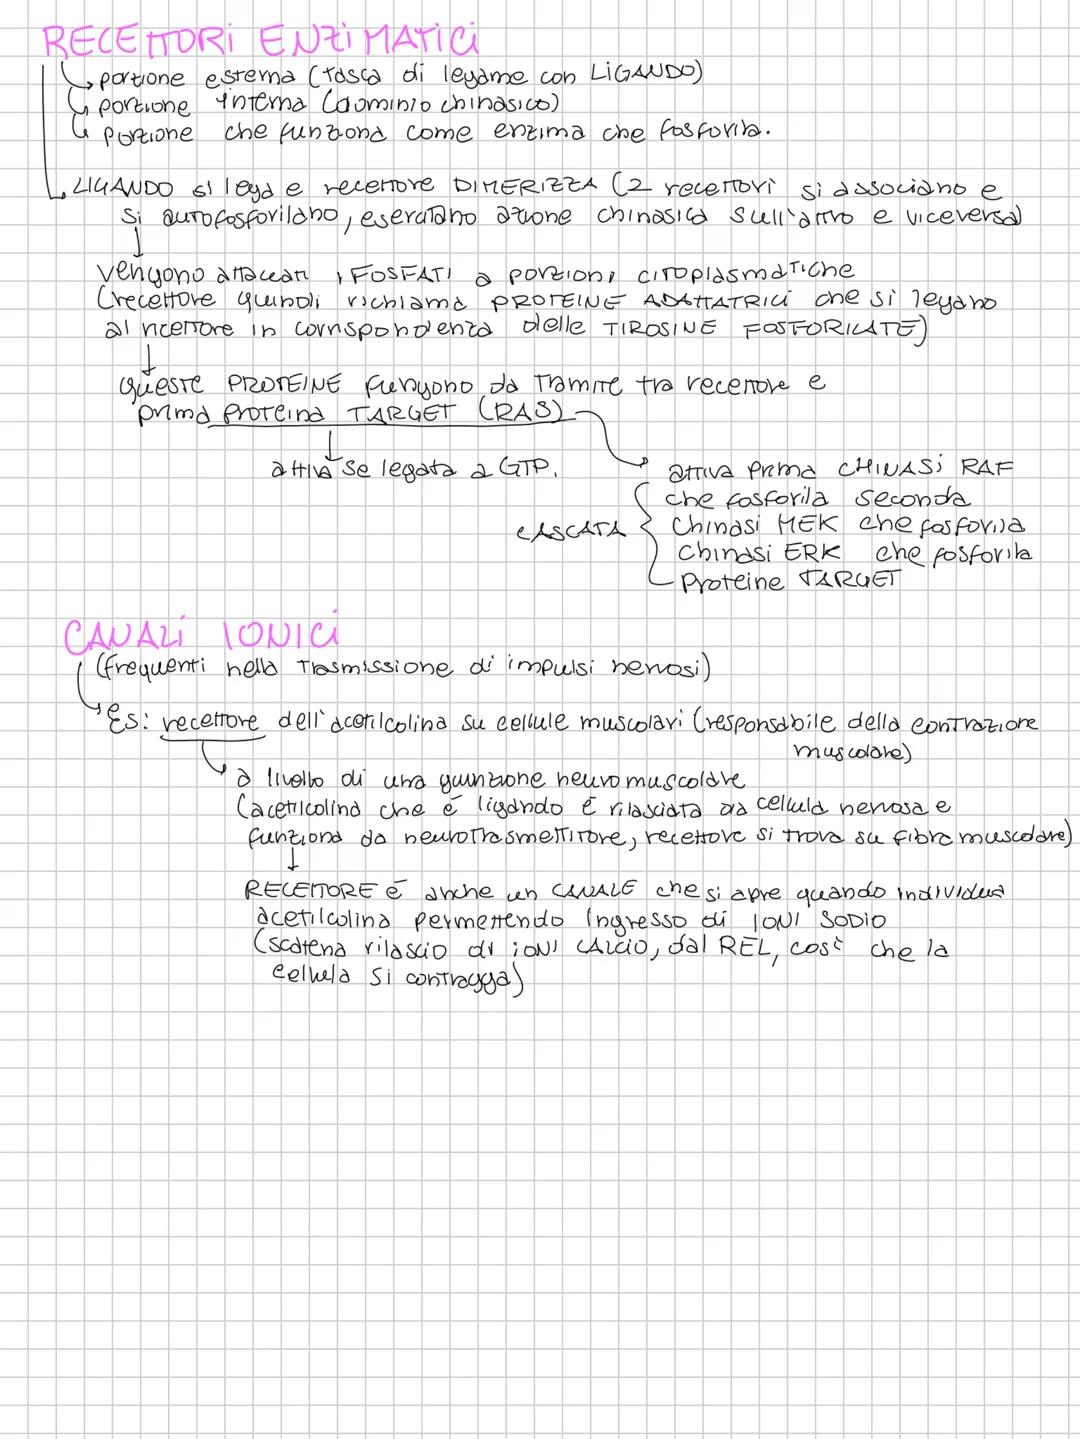 RECETTORI ENZIMATICI
portione esterna (tasca di legame con LIGANDO)
porzione interna (dominio chinasico)
porzione che funziona come enzima che fosforila.
LIGANDO si lega e recettore DIMERIZZA (2 recettori si associano e
si autofosforilano, esercitano azione chinasica sull'altro e viceversa)
vengono attaccati i FOSFATI a porzioni citoplasmatiche
(recettore quindi richiama PROTEINE ADATTATRICI che si legano
al recettore in corrispondenza delle TIROSINE FOSFORILATE)
queste PROTEINE fungono da tramite tra recettore e
prima proteina TARGET (RAS)
attiva se legata a GTP.
attiva prima CHINASI RAF
che fosforila seconda
CASCATA
chinasi MEK che fosforila
chinasi ERK che fosforila
Proteine TARGET
CANALI IONICI
(frequenti nella trasmissione di impulsi nervosi)
Es: recettore dell'acetilcolina su cellule muscolari (responsabile della contrazione
muscolare)
a livello di una giunzione neuromuscolare
(acetilcolina che è ligando è rilasciata da cellula nervosa e
funziona da neurotrasmettitore, recettore si trova su fibra muscolare)
RECETTORE è anche un CANALE che si apre quando individua
acetilcolina permettendo ingresso di IONI SODIO
(scatena rilascio di IONI CALCIO, dal REL, così che la
cellula si contragga)